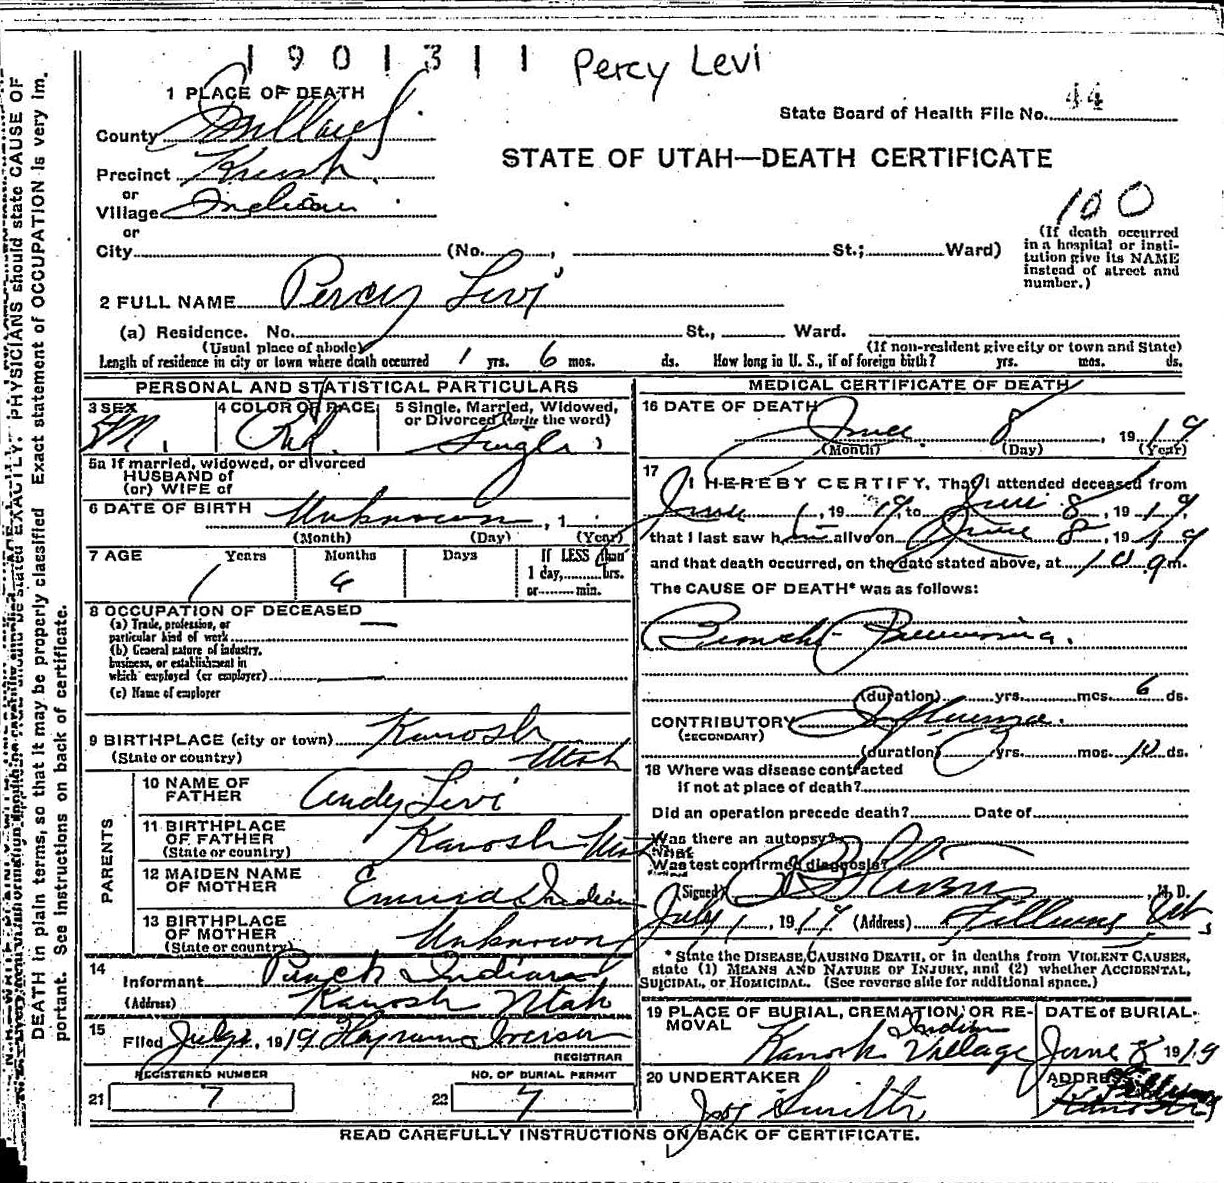 1901311 Percy Levi
1 PLACE OF DEATH
State Board of Health File No. 44
County Millard
STATE OF UTAH—DEATH CERTIFICATE
Precinct
or
Village Indian
or
100
(If death occurred
in a hospital or insti-
tution give its NAME
instead of street and
number.)
City (No. , St.; Ward)
2 FULL NAME Percy Levi
(a) Residence. No. St., Ward.
(Usual place of abode) (If non-resident give city or town and State)
Length of residence in city or town where death occurred 1 yrs. 6 mos. ds. How long in U. S., if of foreign birth? yrs. mos. ds.
PERSONAL AND STATISTICAL PARTICULARS
3 SEX M. 4 COLOR OR RACE Red 5 Single, Married, Widowed,
or Divorced (write the word)
Single
5a If married, widowed, or divorced
HUSBAND of
(or) WIFE of
6 DATE OF BIRTH Unknown , 1
(Month) (Day) (Year)
7 AGE Years Months Days If LESS than
1 day, hrs.
or min.
1 6
8 OCCUPATION OF DECEASED —
(a) Trade, profession, or
particular kind of work
(b) General nature of industry,
business, or establishment in
which employed (or employer)
(c) Name of employer
9 BIRTHPLACE (city or town) Kanosh
(State or country) Utah
PARENTS
10 NAME OF
FATHER Andy Levi
11 BIRTHPLACE
OF FATHER Kanosh Utah
(State or country)
12 MAIDEN NAME
OF MOTHER Emma Indian
13 BIRTHPLACE
OF MOTHER Unknown
(State or country)
14
Informant Indians
(Address) Kanosh Utah
15
Filed July 1, 1919 Iverson
REGISTRAR
REGISTERED NUMBER NO. OF BURIAL PERMIT
21 7 22 7
MEDICAL CERTIFICATE OF DEATH
16 DATE OF DEATH
June 8, 1919
(Month) (Day) (Year)
17
I HEREBY CERTIFY, That I attended deceased from
June 1, 1919, to June 8, 1919,
that I last saw h alive on June 8, 1919
and that death occurred, on the date stated above, at 10 a m.
The CAUSE OF DEATH* was as follows:
Broncho Pneumonia.
(duration) yrs. mos. 6 ds.
CONTRIBUTORY Influenza.
(SECONDARY)
(duration) yrs. mos. 10 ds.
18 Where was disease contracted
If not at place of death?
Did an operation precede death? Date of
Was there an autopsy?
What
Was test confirmed diagnosis?
(Signed) Stevens M. D.
July 1, 1919 (Address) Fillmore Ut
* State the DISEASE CAUSING DEATH, or in deaths from VIOLENT CAUSES,
state (1) MEANS AND NATURE OF INJURY, and (2) whether ACCIDENTAL,
SUICIDAL, or HOMICIDAL. (See reverse side for additional space.)
19 PLACE OF BURIAL, CREMATION, OR RE-
MOVAL
DATE of BURIAL
Kanosh Indian Village June 8 1919
20 UNDERTAKER ADDRESS
Jos Smith Fillmore
Kanosh
READ CAREFULLY INSTRUCTIONS ON BACK OF CERTIFICATE.
PHYSICIANS should state CAUSE OF
DEATH in plain terms, so that it may be properly classified. Exact statement of OCCUPATION is very im-
portant. See instructions on back of certificate.